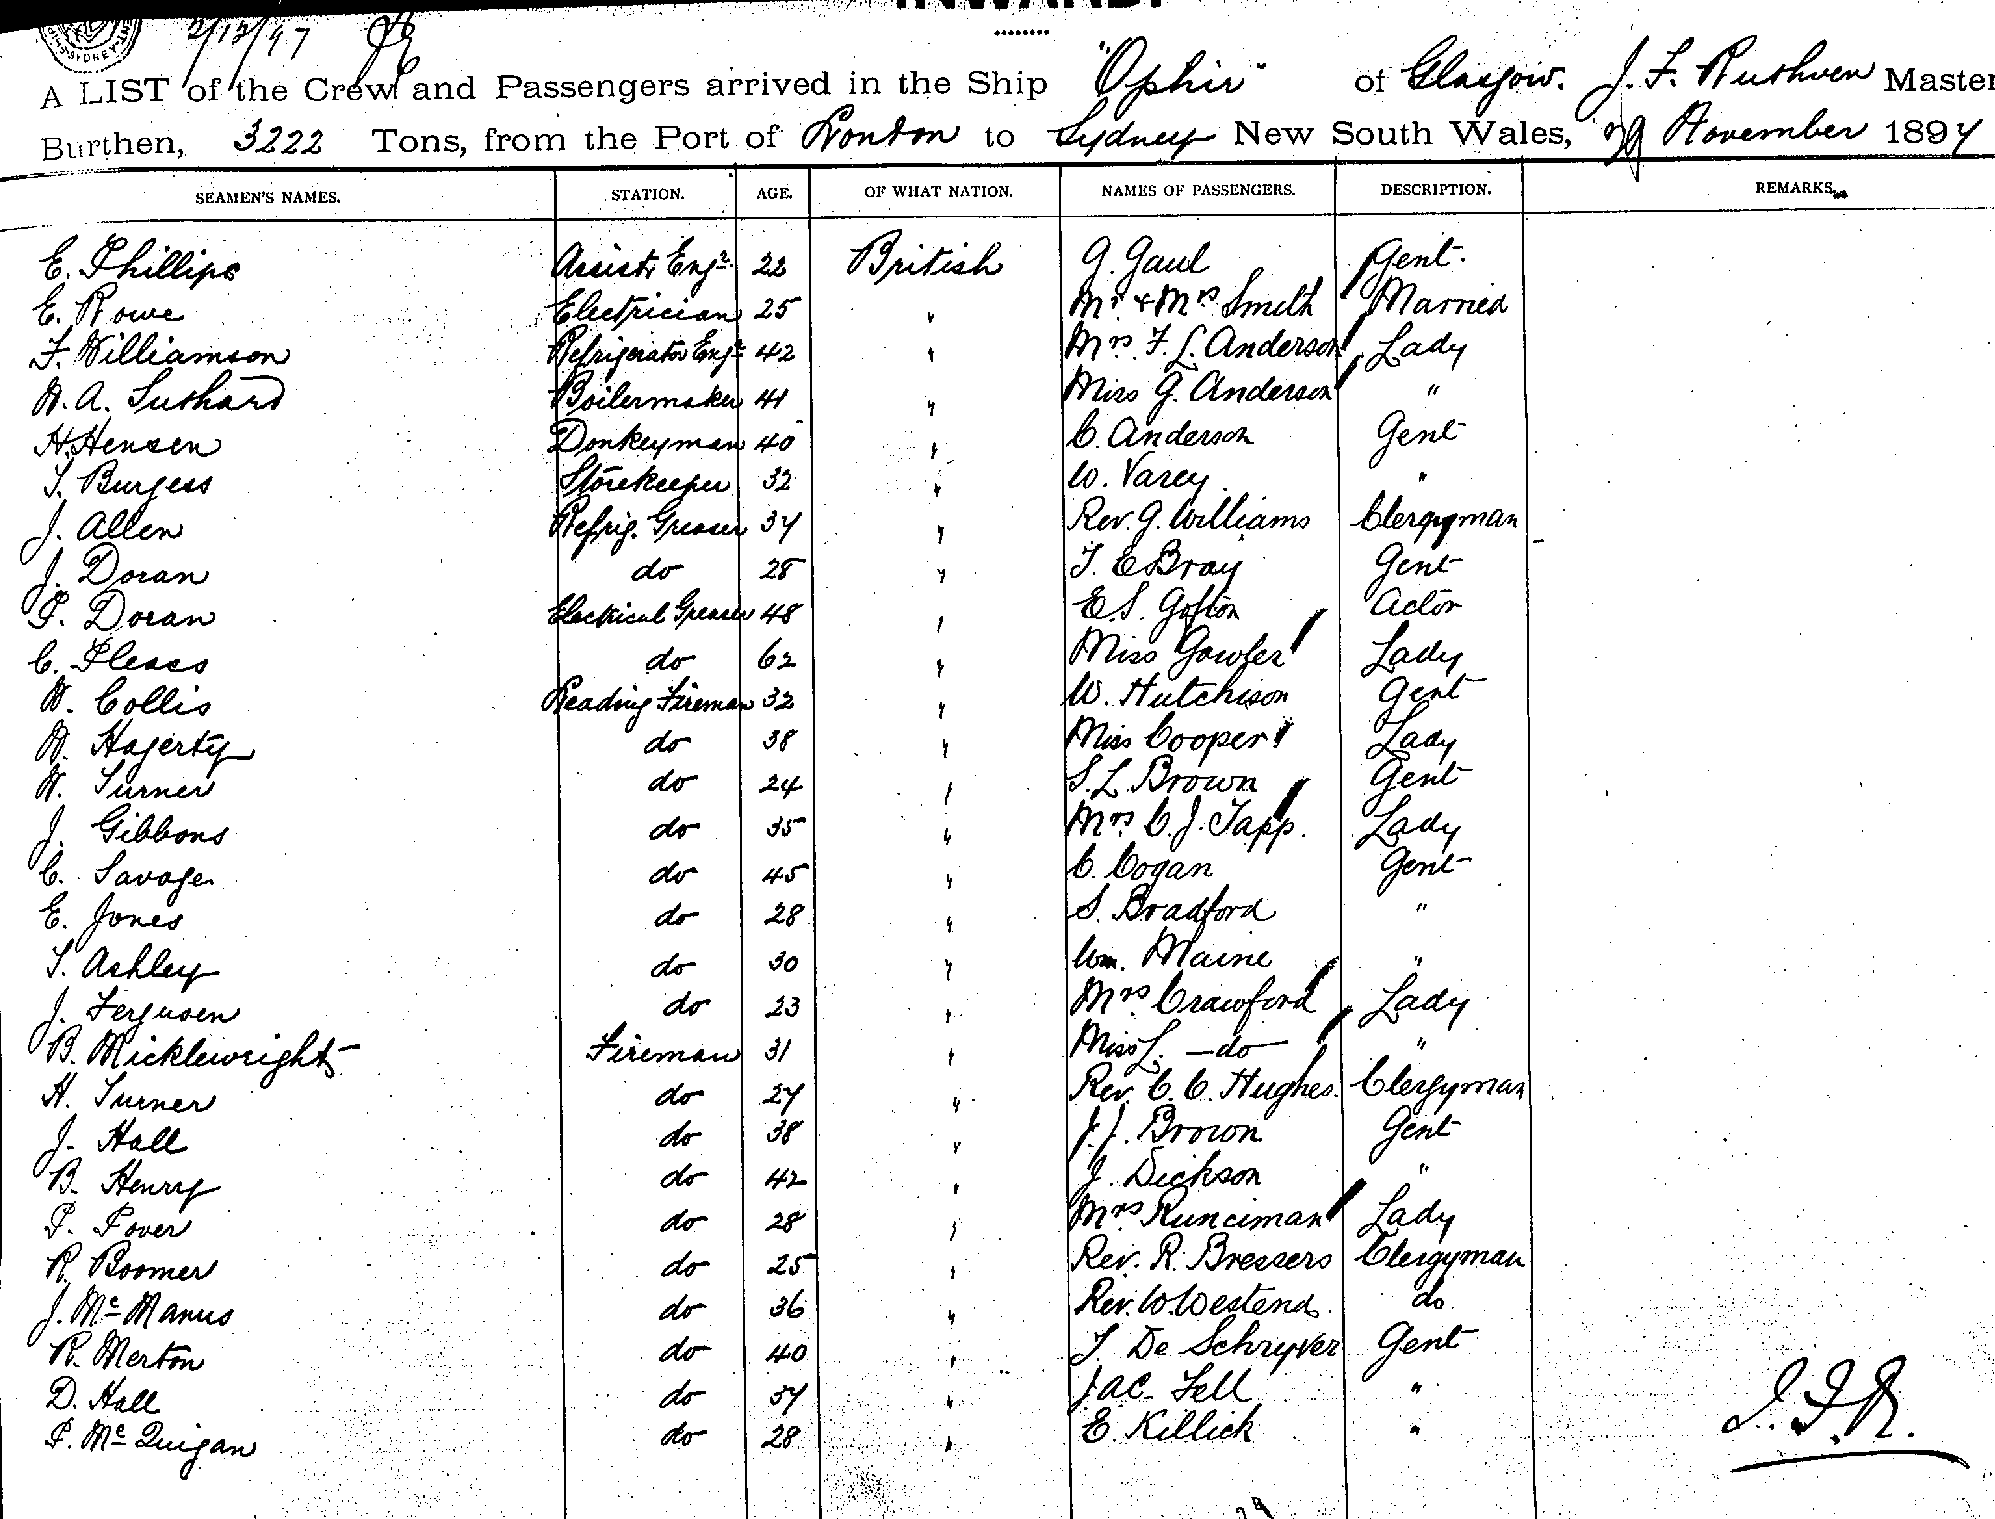 INWARD.
2/12/97
A LIST of the Crew and Passengers arrived in the Ship "Ophir" of Glasgow. J. F. Ruthven Master
Burthen, 3222 Tons, from the Port of London to Sydney New South Wales, 29 November 1897
SEAMEN'S NAMES. STATION. AGE. OF WHAT NATION. NAMES OF PASSENGERS. DESCRIPTION. REMARKS.
E. Phillips Assist. Engr. 22 British G. Gaul Gent.
E. Rowe Electrician 25 " Mr & Mrs Smith Married
F. Williamson Refrigerator Engr 42 " Mrs F. L. Anderson Lady
W. A. Suthard Boilermaker 41 " Miss G. Anderson "
H. Hensen Donkeyman 40 " C. Anderson Gent
T. Burgess Storekeeper 32 " W. Varey. "
J. Allen Refrig. Greaser 37 " Rev. G. Williams Clergyman
J. Doran do 28 " T. E Bray Gent
P. Doran Electrical Greaser 48 " E. S. Gofton Actor
C. Pleass do 62 " Miss Gowler Lady
W. Collis Leading Fireman 32 " W. Hutchison Gent
W. Hagerty do 38 " Miss Cooper Lady
W. Turner do 24 " S. L. Brown Gent
J. Gibbons do 35 " Mrs C. J. Tapp. Lady
C. Savage do 45 " C. Cogan Gent
E. Jones do 28 " S. Bradford "
T. Ashley do 30 " Wm. Maine "
J. Ferguson do 23 " Mrs Crawford Lady
B. Micklewright Fireman 31 " Miss L. —do— "
H. Turner do 27 " Rev. C. C. Hughes. Clergyman
J. Hall do 38 " J. J. Brown Gent
B. Henry do 42 " J. Dickson "
P. Pover do 28 " Mrs Runciman Lady
R. Boomer do 25 " Rev. R. Bressers Clergyman
J. Mc Manus do 36 " Rev. W. Westend. do
R. Merton do 40 " T De Schryver Gent
D. Hall do 37 " Jac. Fell "
P. Mc Quigan do 28 " E. Killick "
J. F. R.